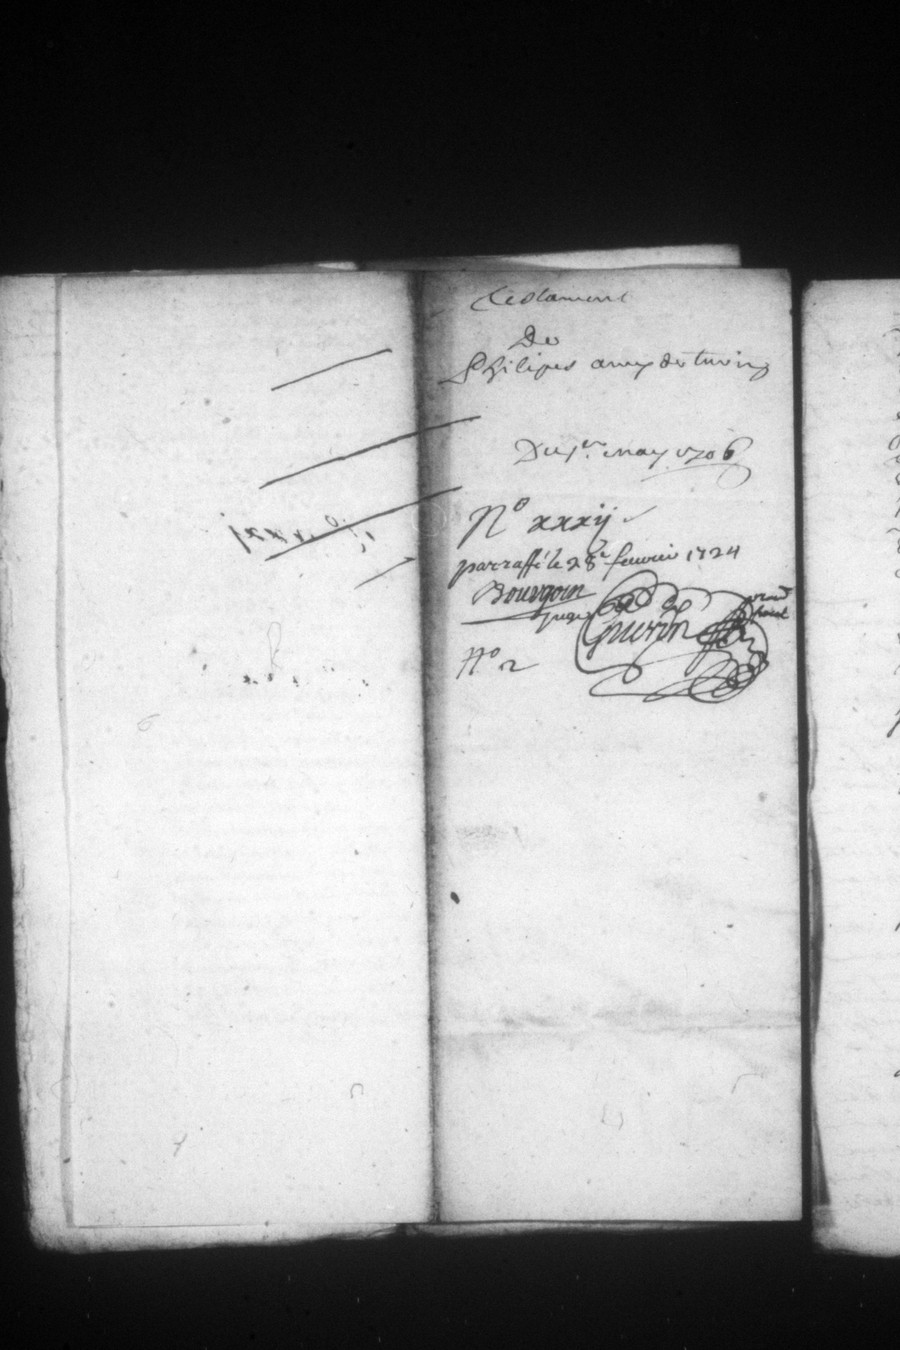 Testament
De
Philipes amy de turin
Du 1er. may 1706
No xxxij
parraffé le 28e feuvrier 1724
Bourgoin
juge
Guerin
No 2